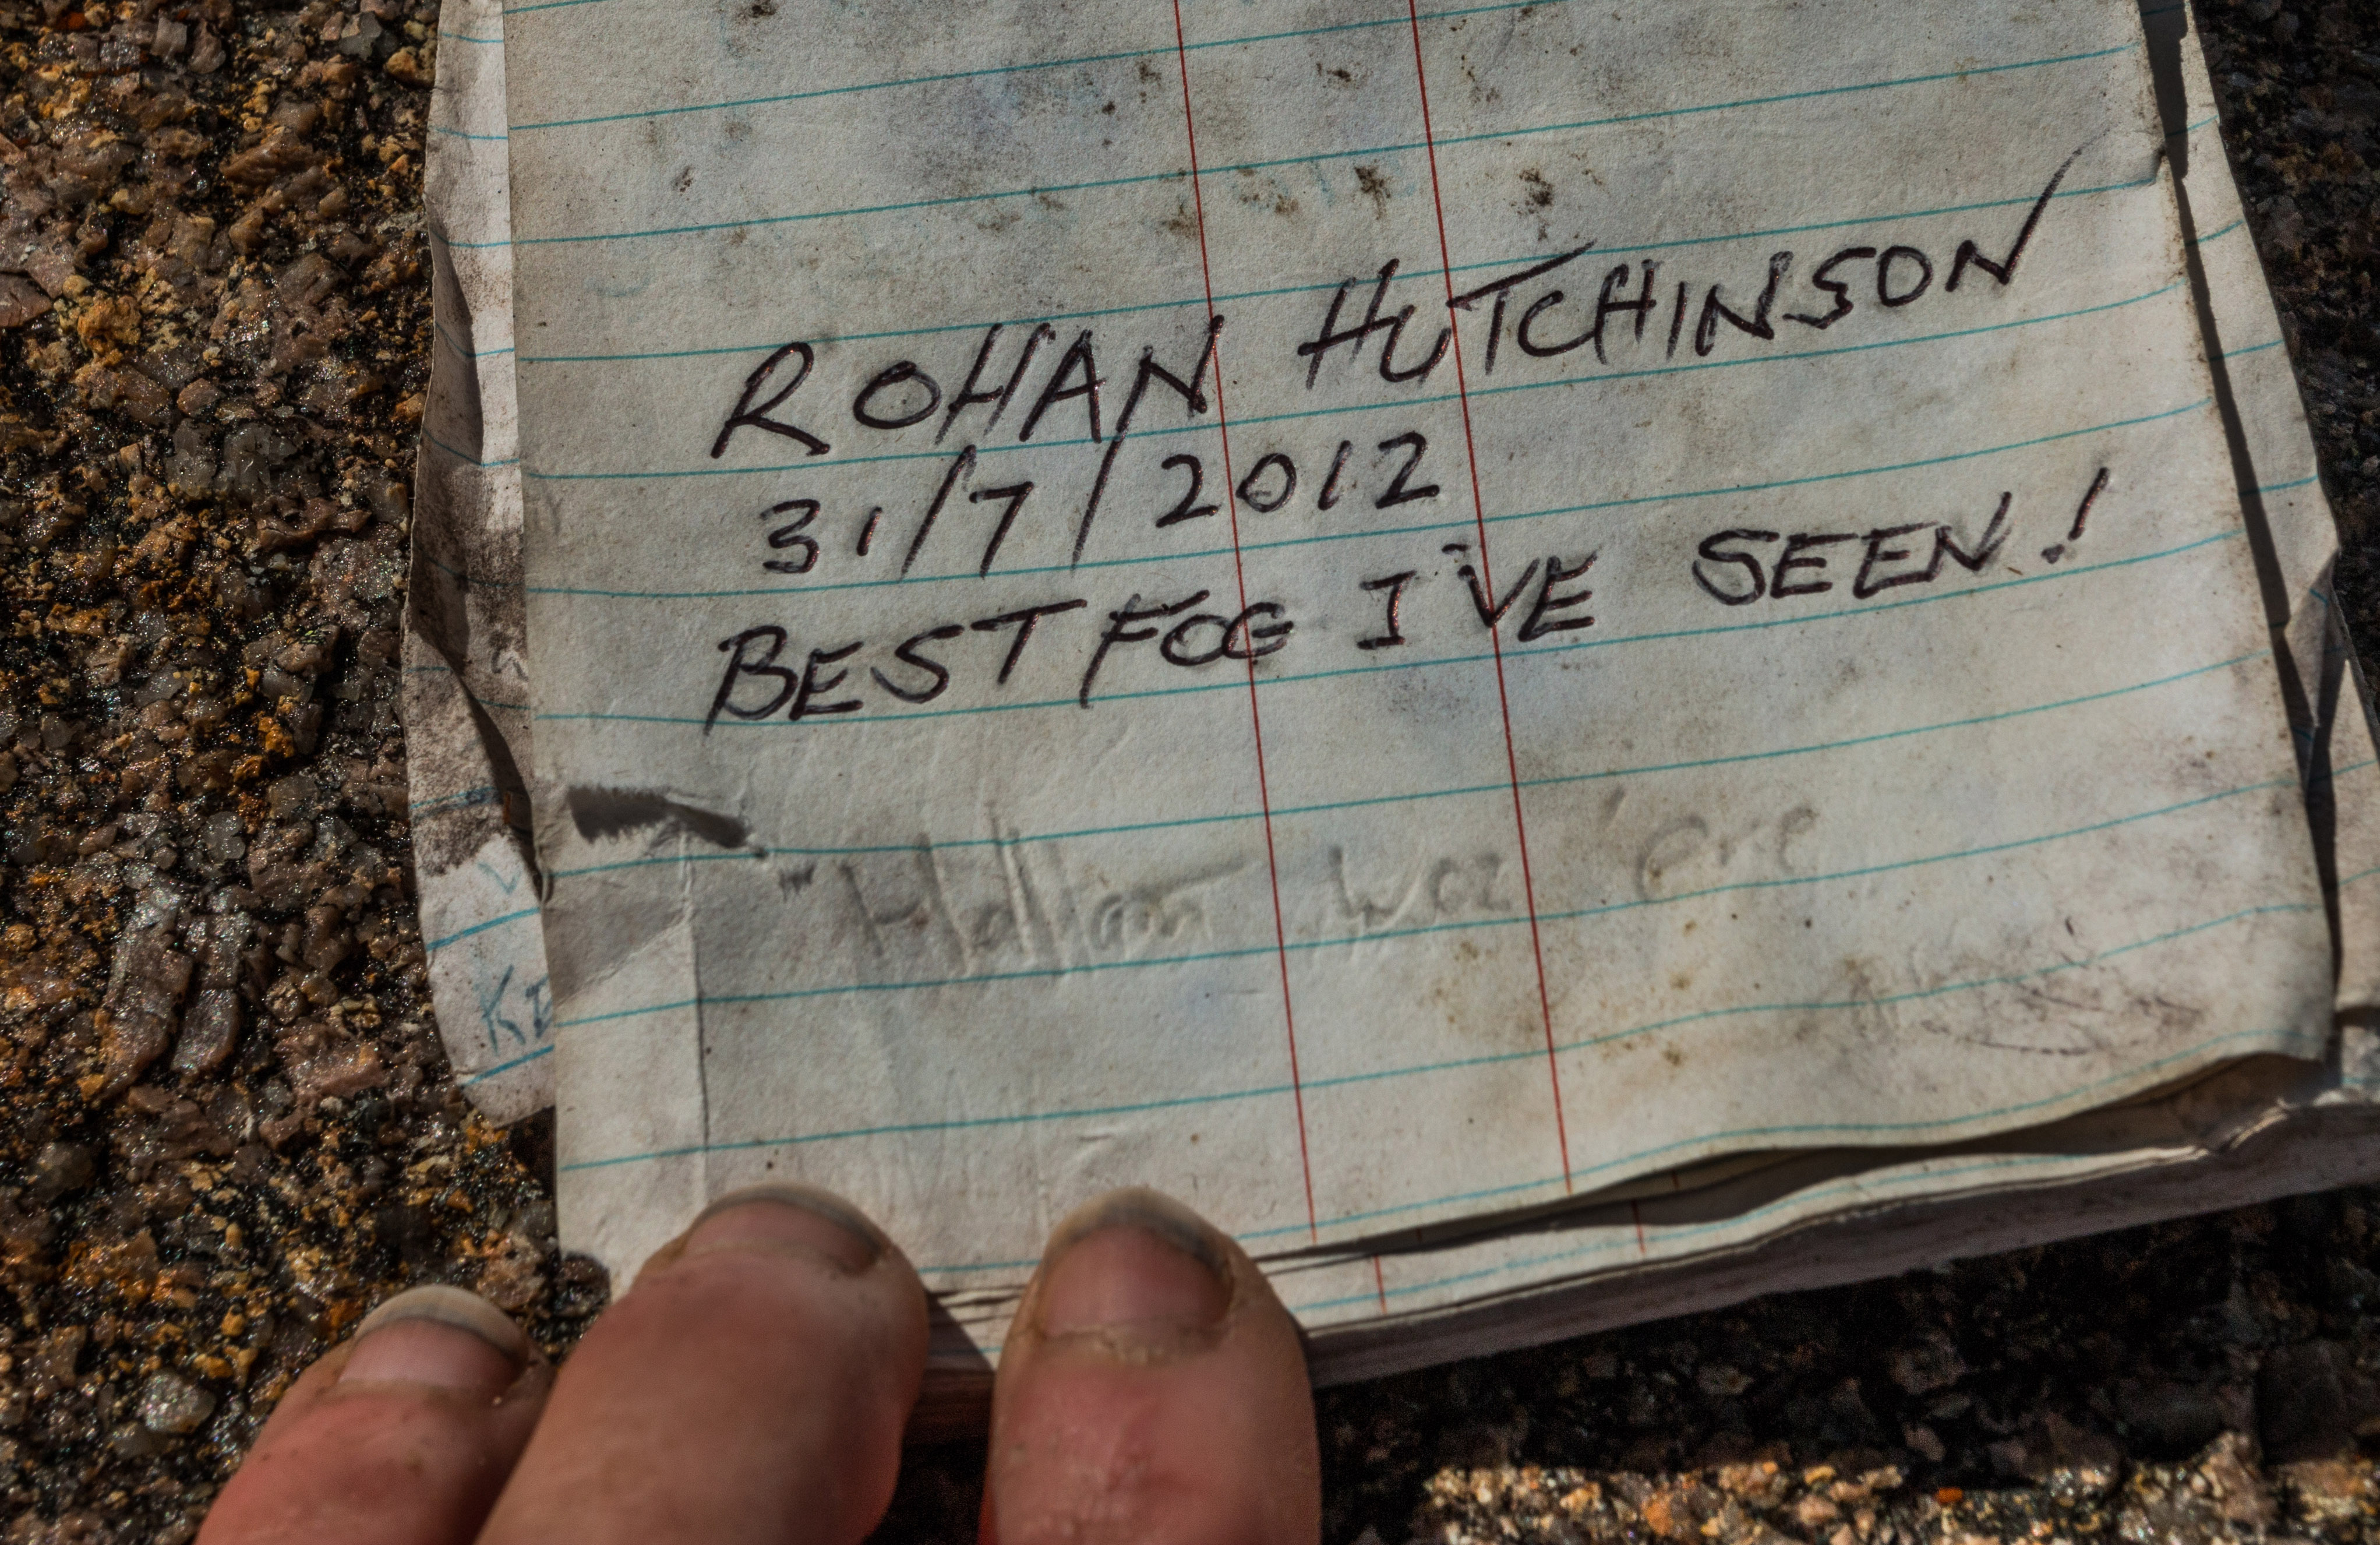 ROHAN HUTCHINSON
31/7/2012
BEST FOG I'VE SEEN!
Hallam woz 'ere
KE